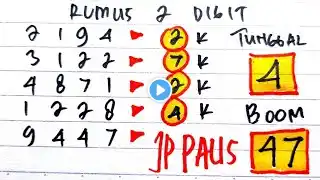 RUMUS 2 DIGIT
2 1 9 4 2 K TUNGGAL
3 1 2 2 7 K 4
4 8 7 1 2 K
1 2 2 8 4 K BOOM
9 4 4 7 JP PAUS 47